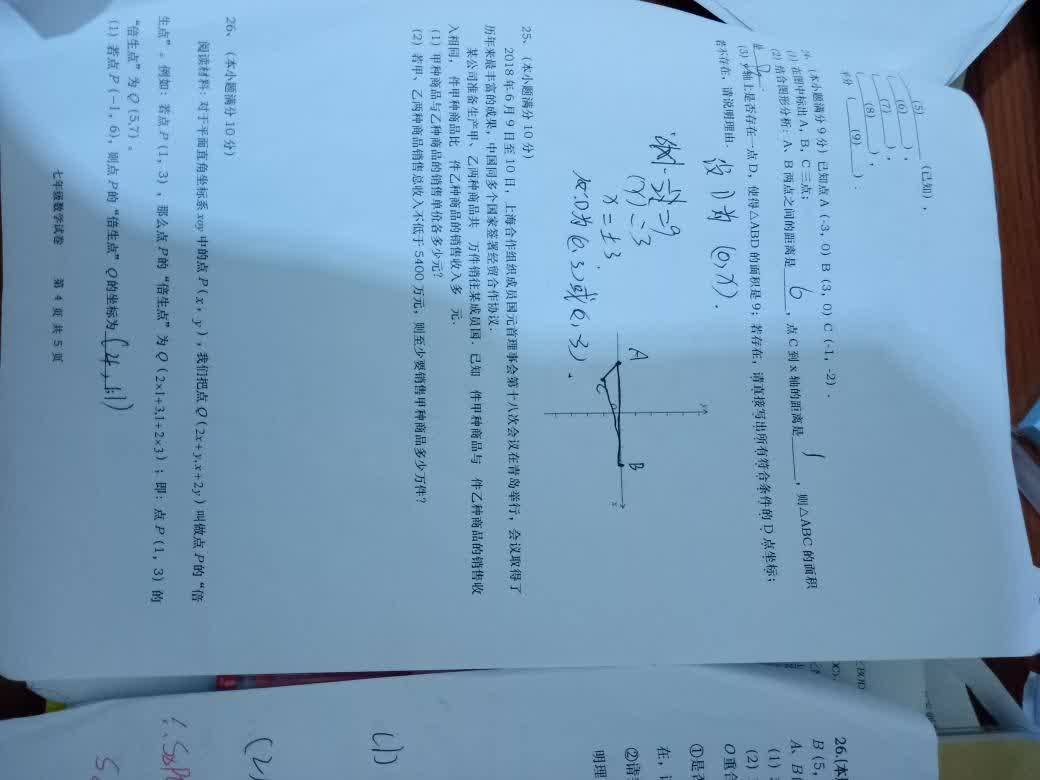 (5) (已知),
(6) ),
(7) ),
(8) ),
平分 ( (9) ).
(本小题满分 9 分) 已知点 A (-3, 0) B (3, 0) C (-1, -2).
(1) 在图中标出 A、B、C 三点;
(2) 结合图形分析: A、B 两点之间的距离是 6 , 点 C 到 x 轴的距离是 , 则△ABC 的面积
是
(3) y 轴上是否存在一点 D, 使得△ABD 的面积是 9; 若存在, 请直接写出所有符合条件的 D 点坐标;
若不存在, 请说明理由.
设 D为 (0, x).
x = ±3
A
B
C
x
25、(本小题满分 10 分)
2018 年 6 月 9 日至 10 日, 上海合作组织成员国元首理事会第十八次会议在青岛举行, 会议取得了
历年来最丰富的成果, 中国同多个国家签署经贸合作协议.
某公司准备生产甲、乙两种商品共 万件销往某成员国. 已知 件甲种商品与 件乙种商品的销售收
入相同, 件甲种商品比 件乙种商品的销售收入多 元.
(1) 甲种商品与乙种商品的销售单价各多少元?
(2) 若甲、乙两种商品销售总收入不低于 5400 万元, 则至少要销售甲种商品多少万件?
26、(本小题满分 10 分)
阅读材料: 对于平面直角坐标系 xoy 中的点 P (x, y), 我们把点 Q (2x+y,x+2y) 叫做点 P 的 “倍
生点”。例如: 若点 P (1, 3), 那么点 P 的 “倍生点” 为 Q (2×1+3,1+2×3); 即: 点 P (1, 3) 的
“倍生点” 为 Q (5,7)。
(1) 若点 P (-1, 6), 则点 P 的 “倍生点” Q 的坐标为
七年级数学试卷 第 4 页 共 5 页
26.(本
B (5,
A、B
(1)
(2)
O重合
①是否
在,
②请
明理
(1)
(2)